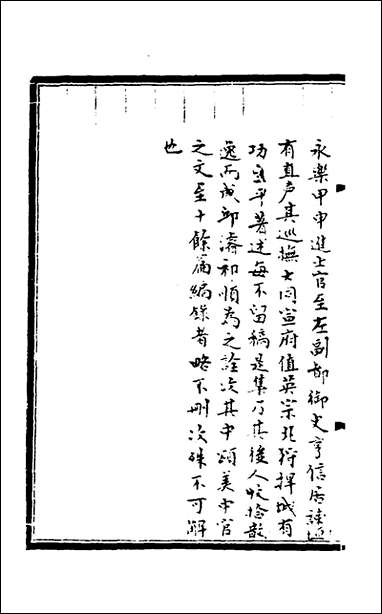 永樂甲申進士官至左副都御史亨信居諫垣
有直声其巡撫大同宣府值英宗北狩捍城有
功生平著述每不留稿是集乃其後人收拾散
逸而成邱濬和順為之詮次其中頌美中官
之文至十餘篇編錄者略不刪次殊不可解
也